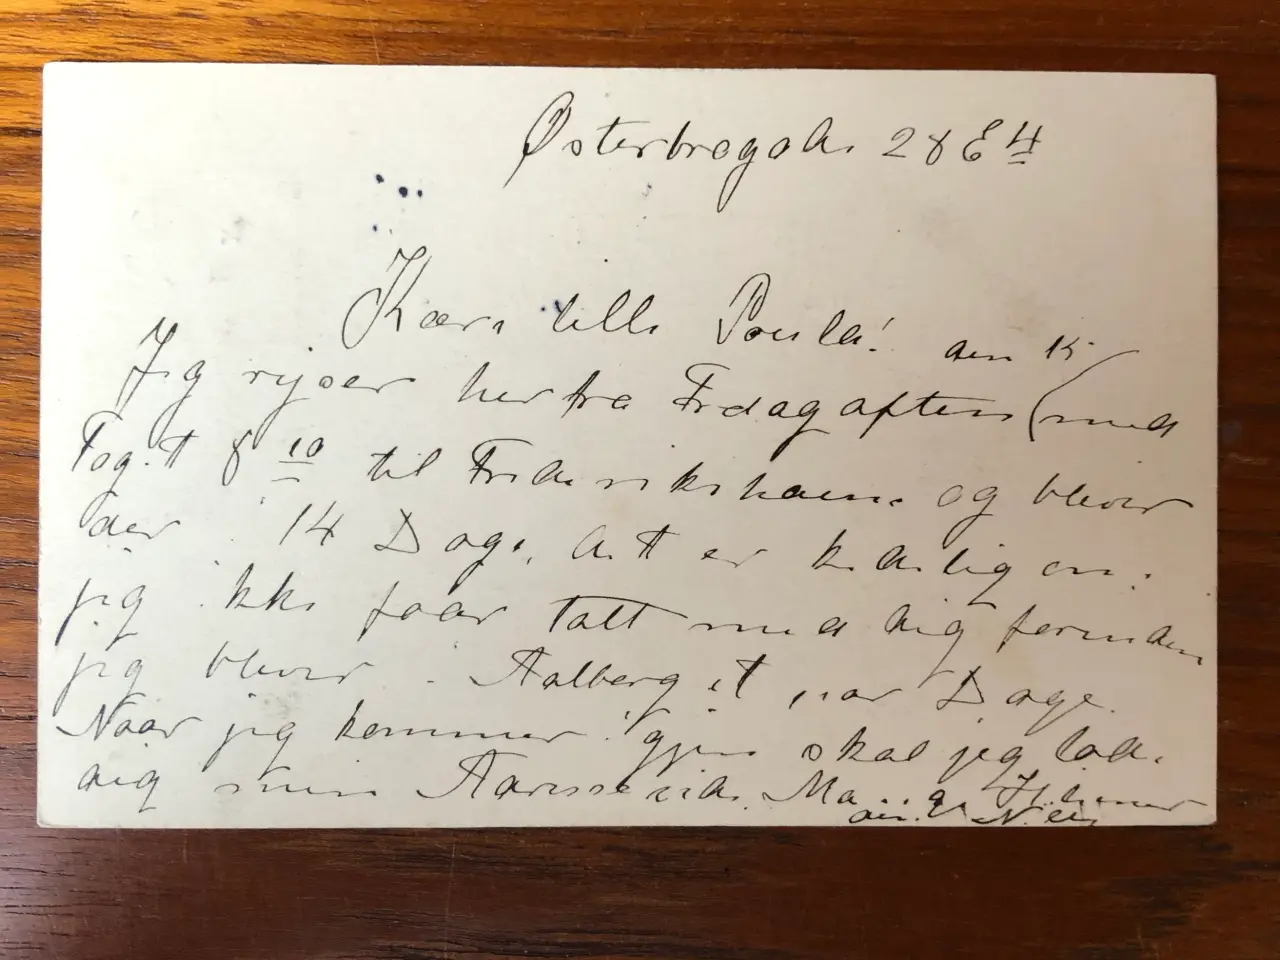 Østerbrogade 28 E 4
Kære lille Poula! den 15
Jeg rejser herfra Fredag aften (med
Toget 8 10 til Frederikshavn og bliver
der 14 Dage, det er kedelig om
jeg ikke faar talt med dig forinden
jeg bliver i Aalborg et par Dage.
Naar jeg kommer igjen skal jeg lade
dig min Mange Hilsener
din